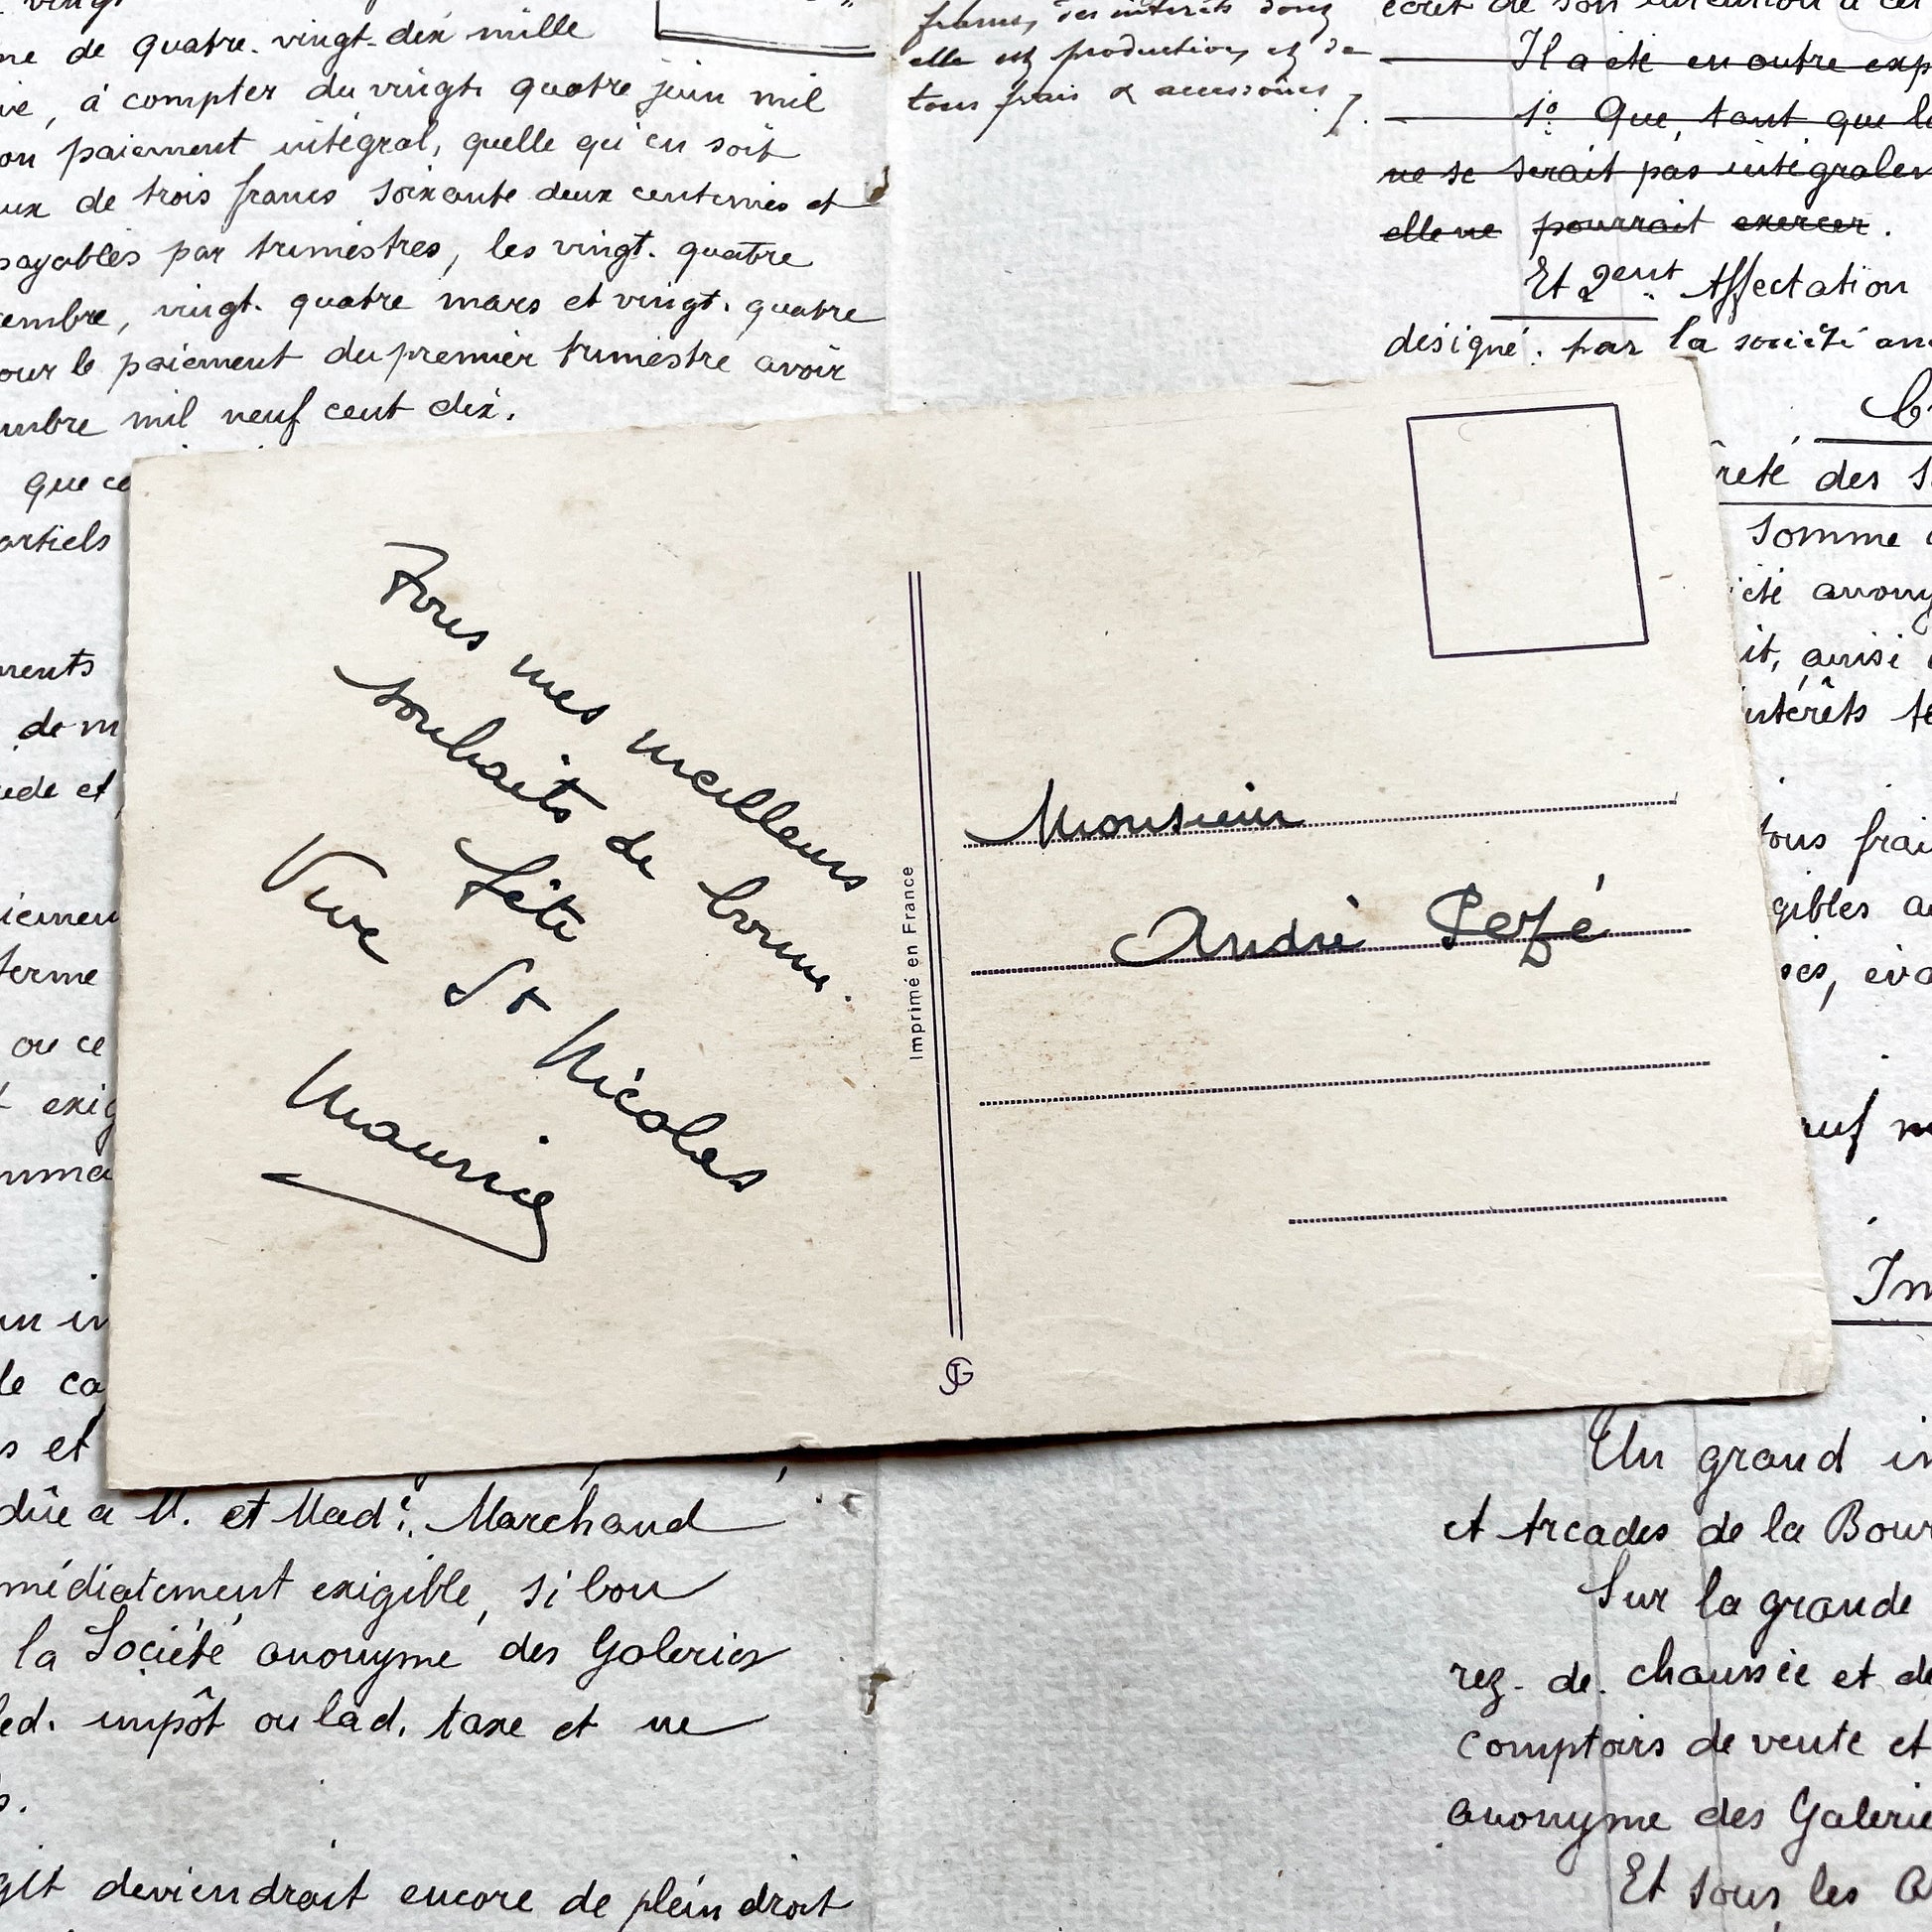 vingt
de quatre-vingt-dix mille
, à compter du vingt quatre juin mil
paiement intégral, quelle qu'en soit
de trois francs soixante deux centimes et
payables par trimestres, les vingt-quatre
, vingt-quatre mars et vingt-quatre
le paiement du premier trimestre avoir
mil neuf cent dix.
que ce
de
et
ou ce
et
francs, des intérêts dont
elle est production, et de
tous frais & accessoires
écrit de son intention à cet
Il a été en outre exp
1º Que, tant que
ne se serait pas intégralem
elle ne pourrait exercer.
Et 2ent Affectation
désigné. par la société
Tous mes meilleurs
souhaits de bonne
fête.
Vive St Nicolas
Maurice
Imprimé en France
JG
Monsieur
André Pezé
des
somme
ainsi
intérêts
tous frais
Im
dûe a M. et Made. Marchand
immédiatement exigible, si bon
la Société anonyme des Galeries
led. impôt ou lad. taxe et ne
deviendrait encore de plein droit
Un grand
et Arcades de la Bour
Sur la grande
rez-de-chaussée et de
comptoirs de vente et
anonyme des Galerie
Et sous les